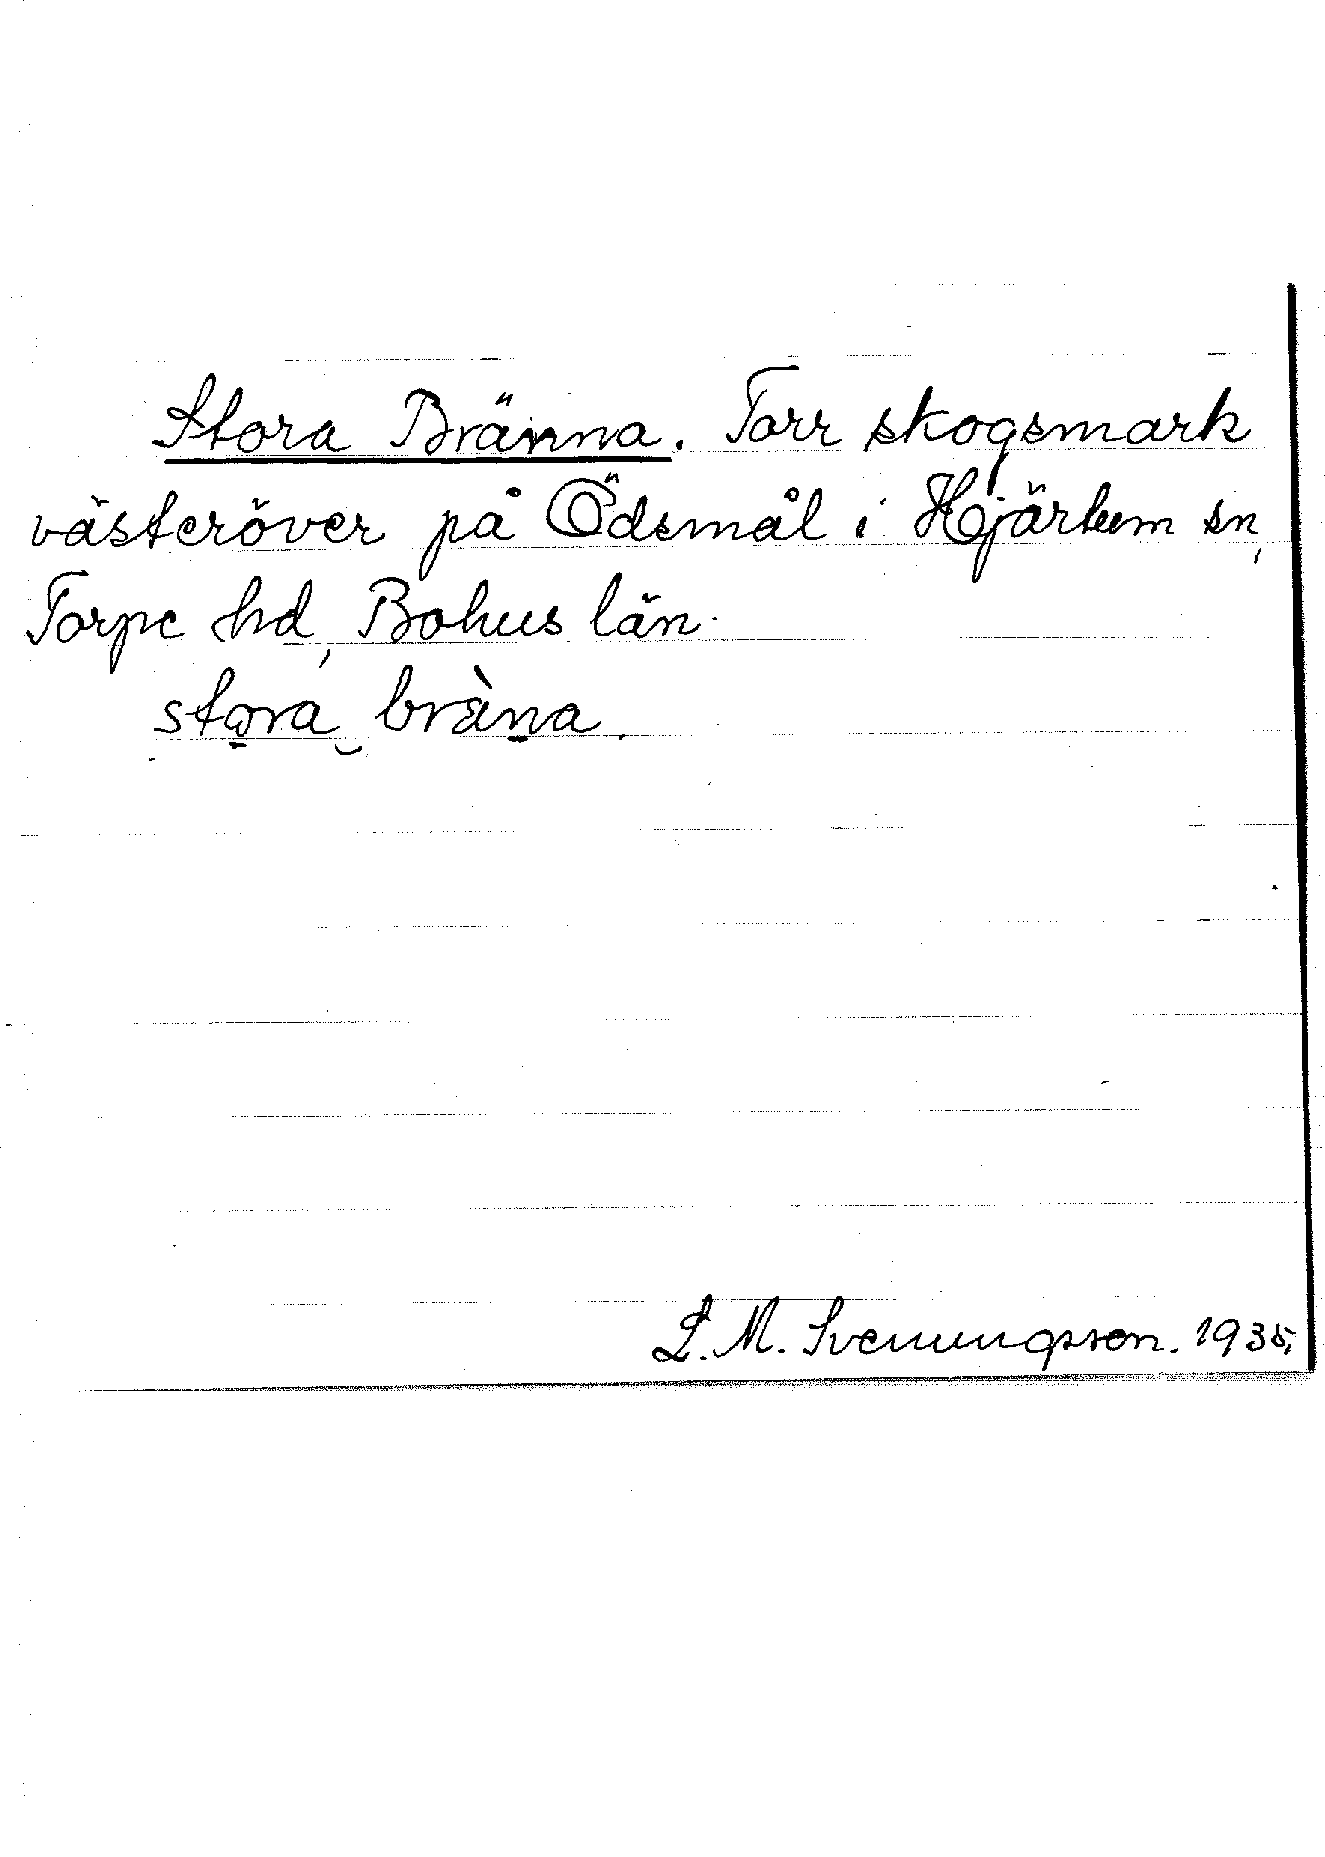 Stora Bränna. Torr skogsmark
västeröver på Ödsmål i Hjärtum sn,
Torpe hd, Bohus län.
stora bràna.
L. M. Svenungsson. 1935.